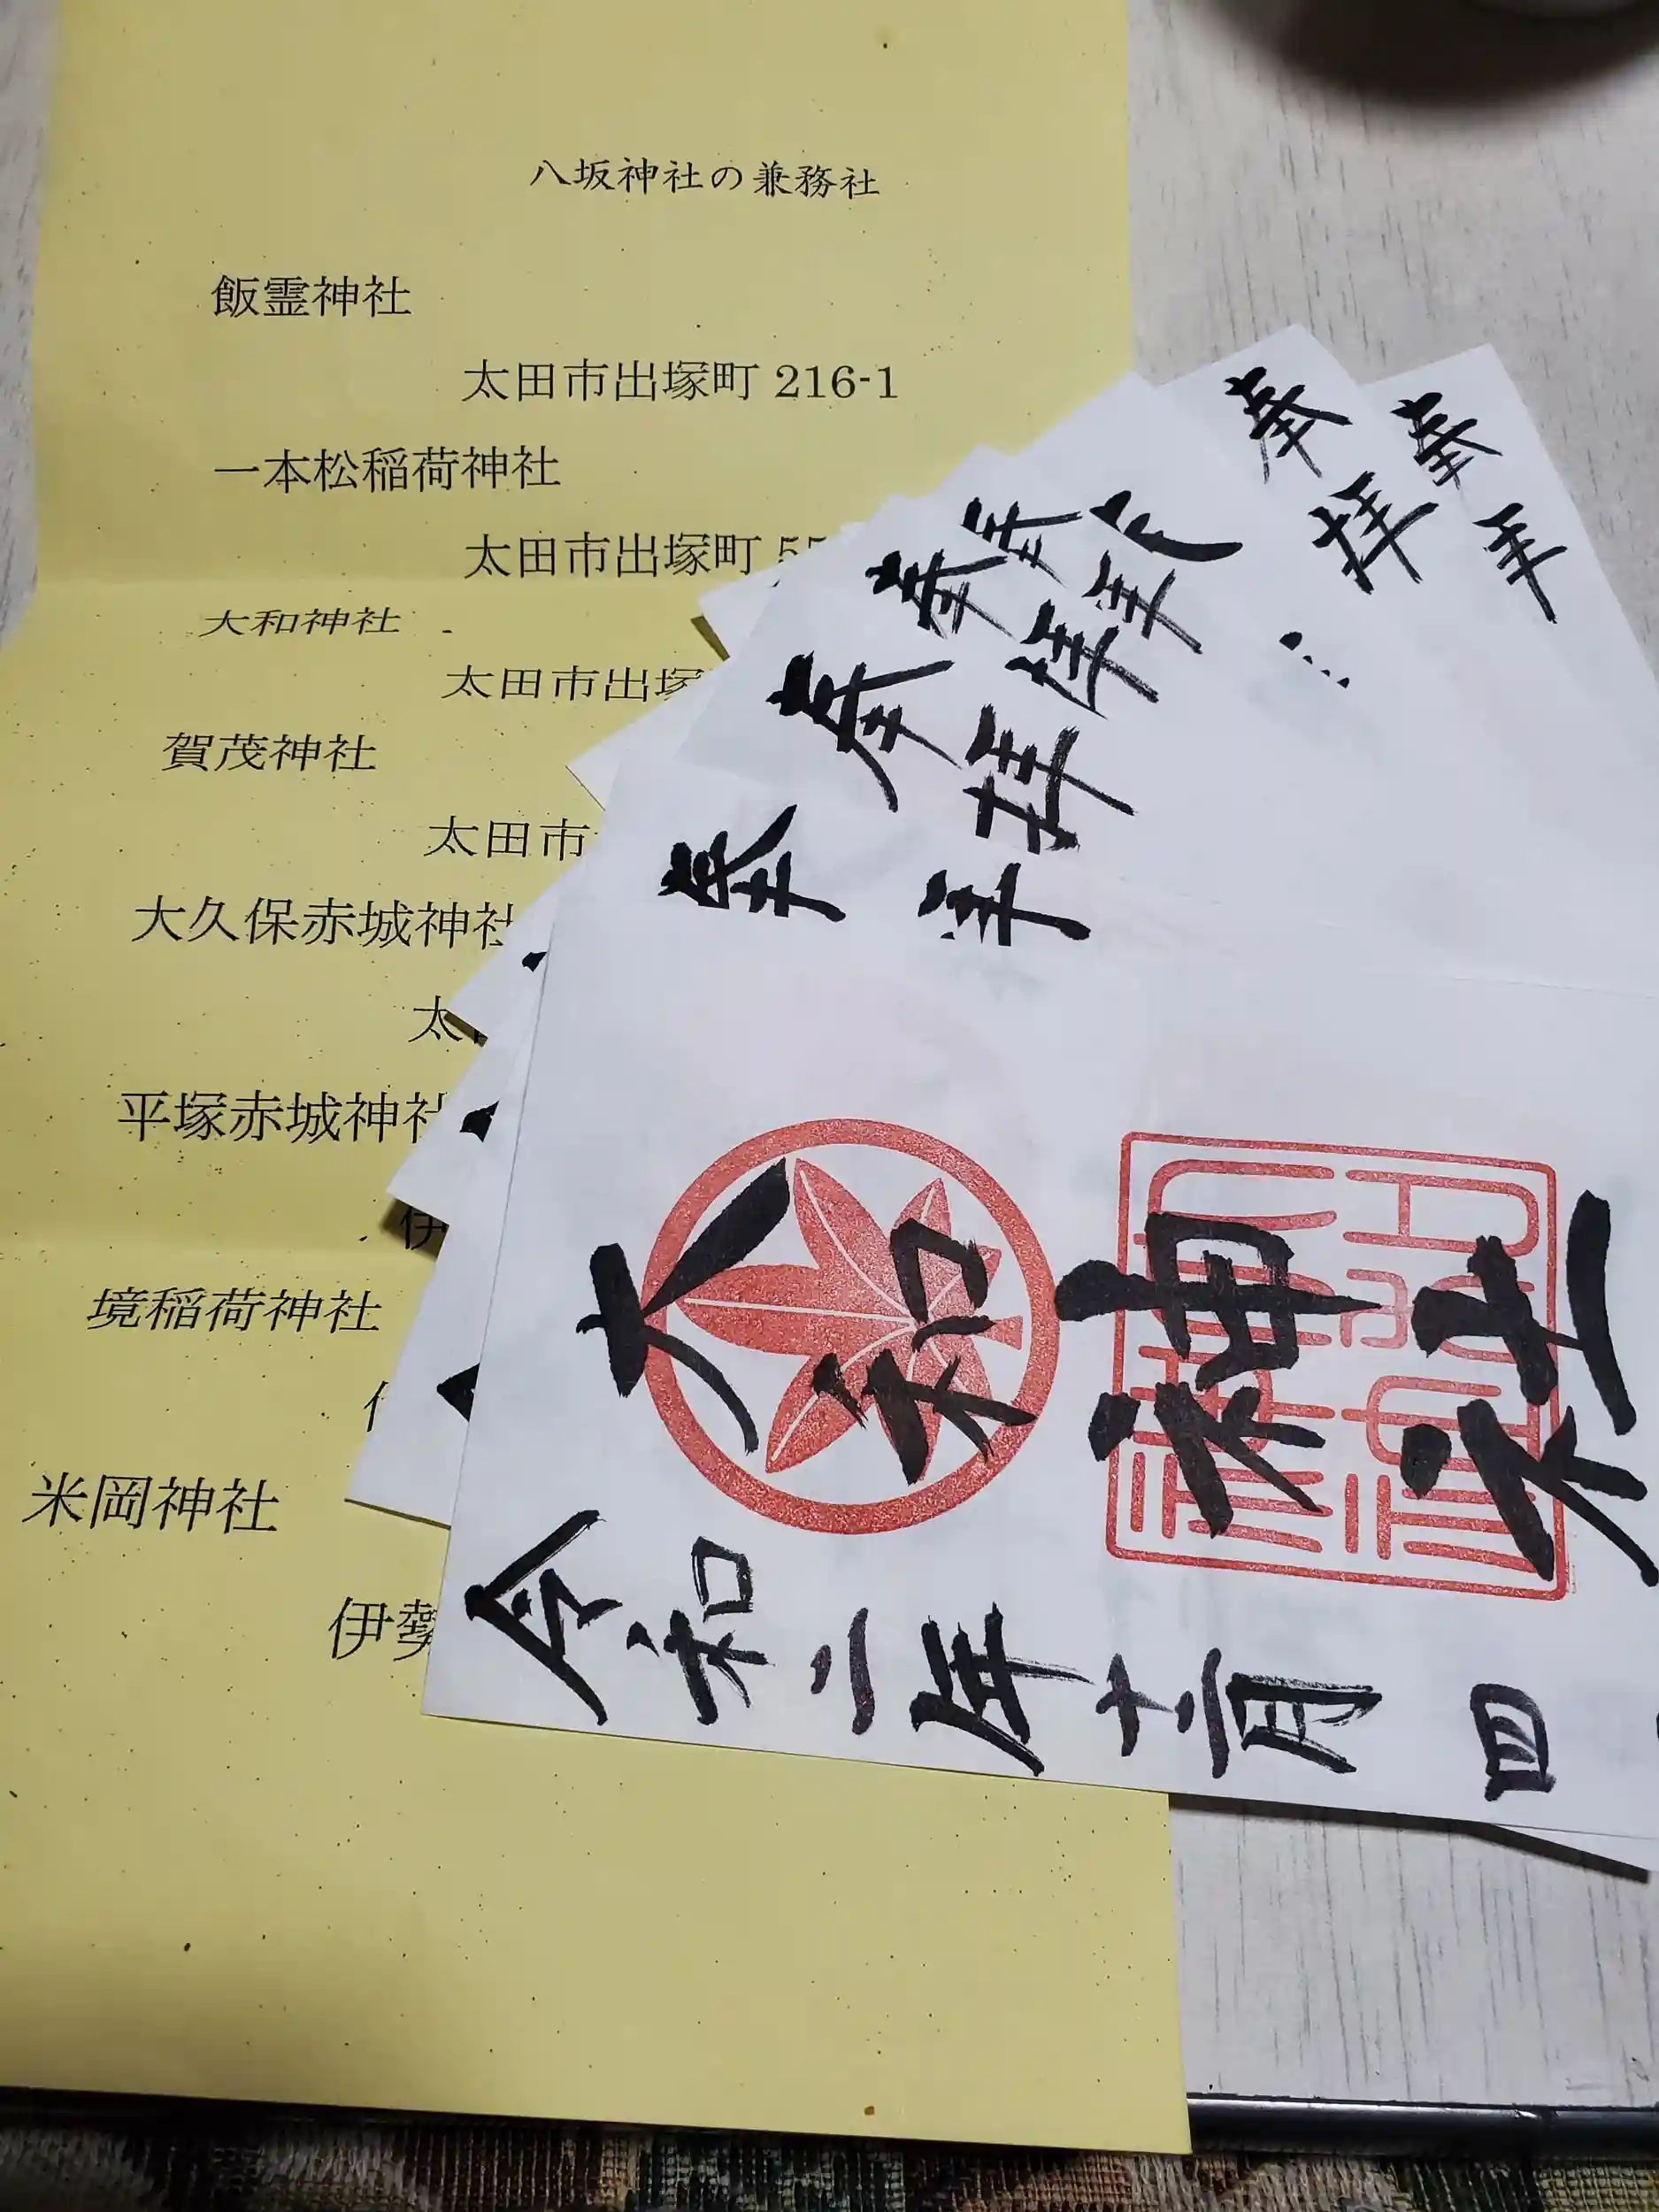 八坂神社の兼務社
飯霊神社
太田市出塚町 216-1
一本松稲荷神社
太田市出塚町
大和神社
太田市出塚
賀茂神社
太田市
大久保赤城神社
太
平塚赤城神社
伊
境稲荷神社
米岡神社
伊勢
奉拝
奉拝
奉拝
奉拝
奉拝
奉拝
大和神社
令和二年十二月四